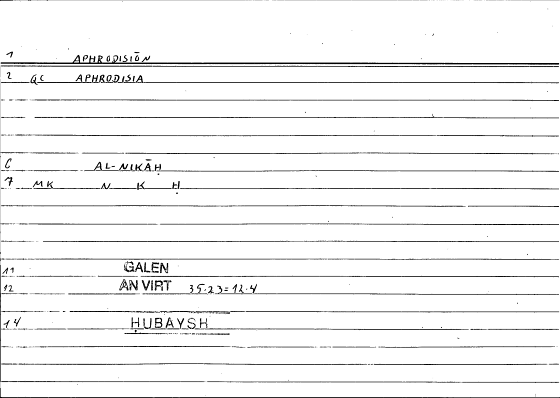 1 APHRODISIŌN
2 GC APHRODISIA
C AL-NIKĀḤ
7 MK N K Ḥ
11 GALEN
12 AN VIRT 35.23=12.4
14 ḤUBAYSH